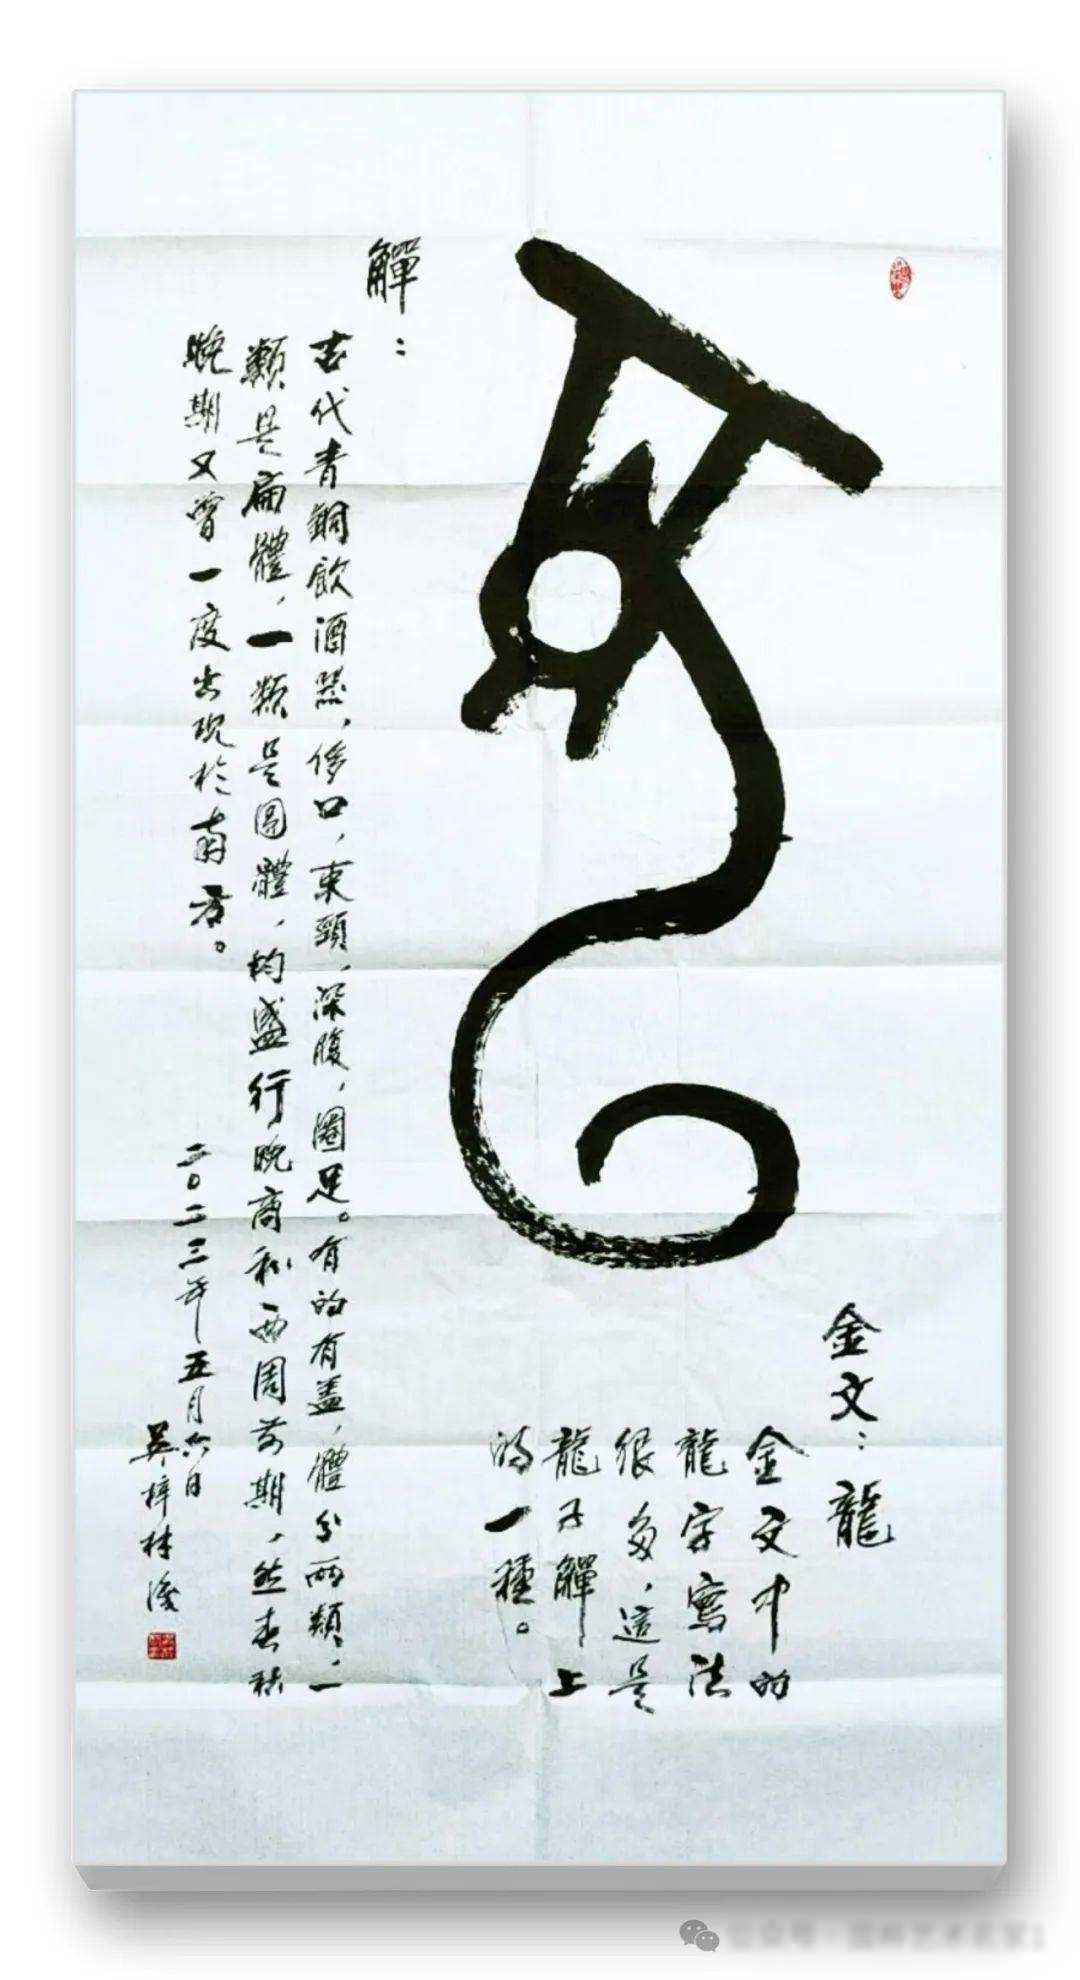 金文：龍
金文中的
龍字寫法
很多，這是
龍子觶上
的一種。
觶：
古代青銅飲酒器，侈口，束頸，深腹，圈足。有的有蓋，體分兩類，一
類是扁體，一類是圓體，均盛行晚商和西周前期，然春秋
晚期又曾一度出現於南方。
二〇二三年五月六日
吳梓林